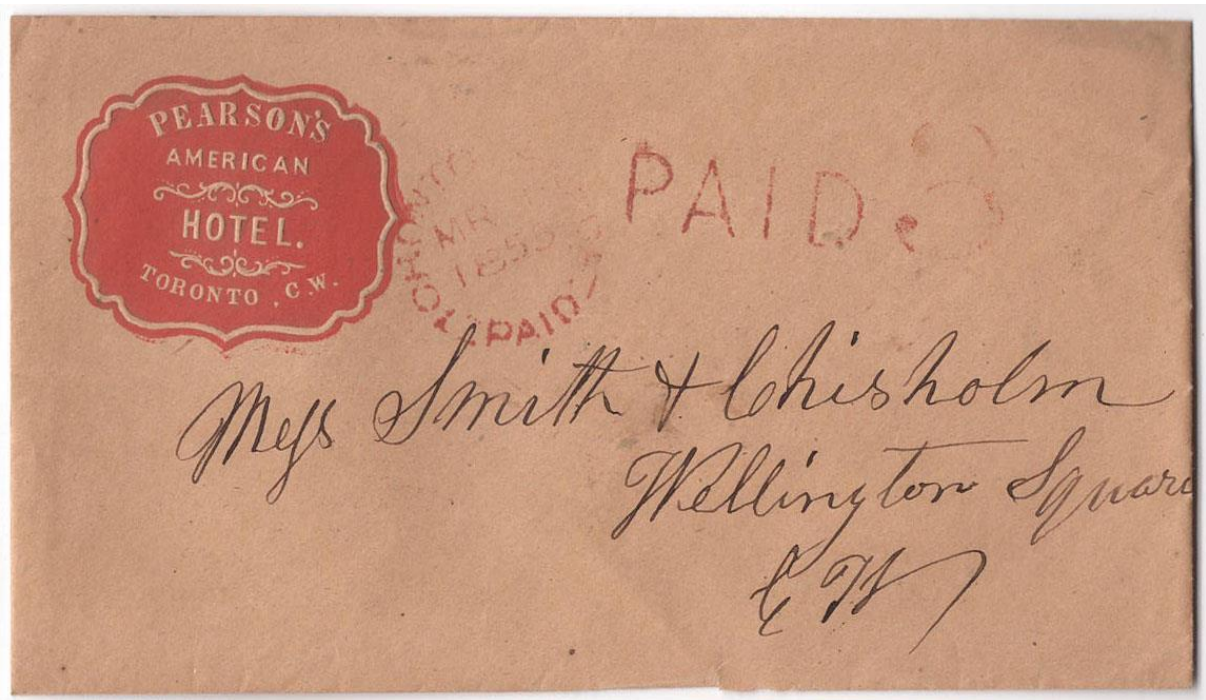 PEARSON'S
AMERICAN
HOTEL.
TORONTO, C.W.
TORONTO
MR
1855
PAID
PAID 3
Mess Smith & Chisholm
Wellington Square
C W